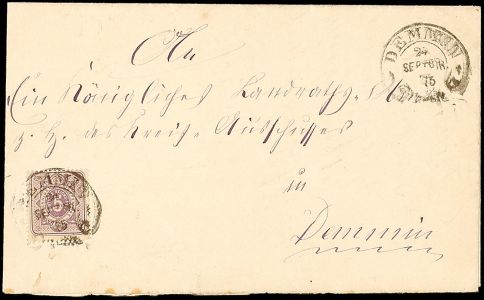 An
Ein Königliches Landraths-A
z. H. des Kreis-Ausschusses
in
Demmin
DEMMIN
24
SEPTBR.
75
5